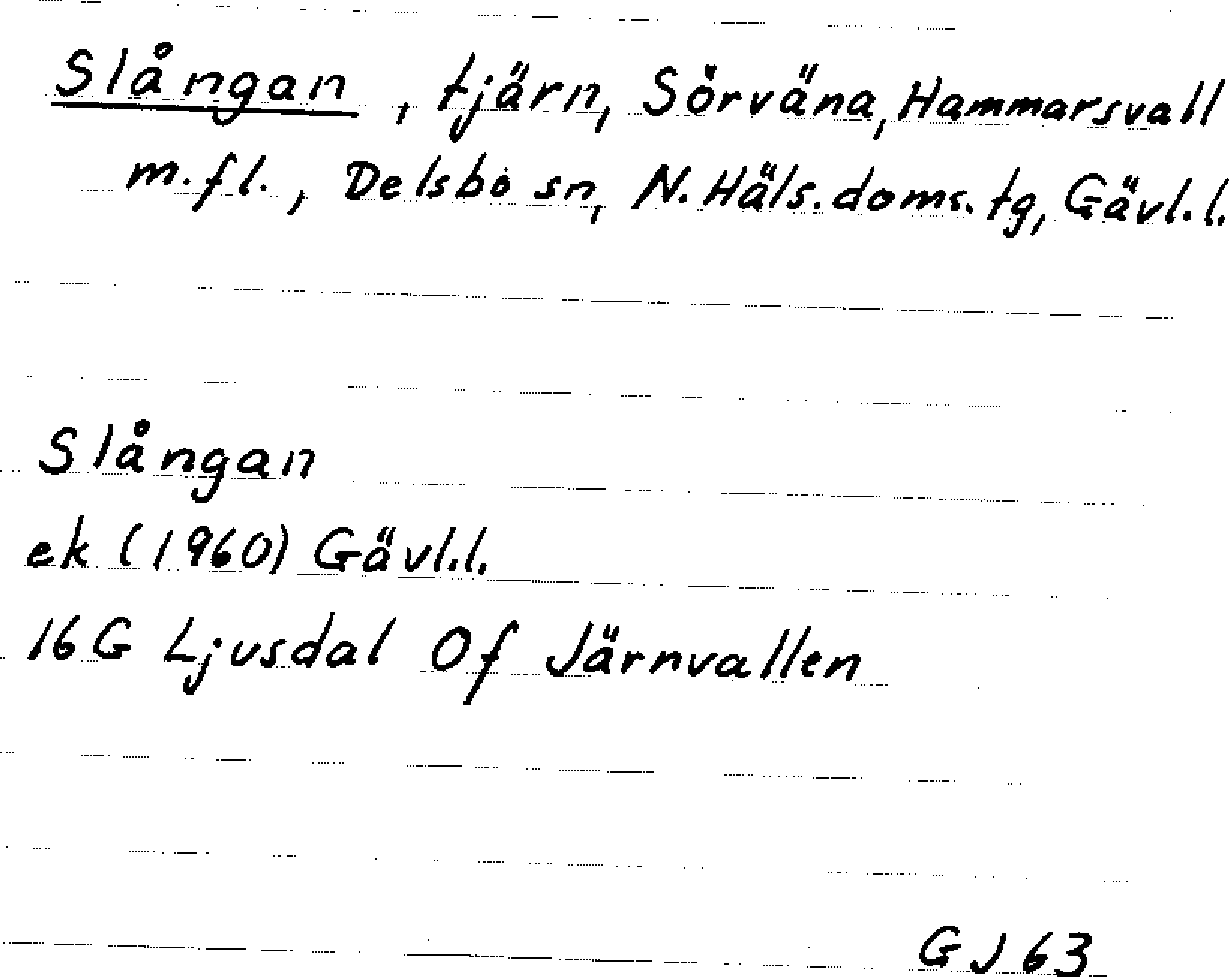 Slångan, tjärn, Sörväna, Hammarsvall
m.fl., Delsbo sn, N. Häls. doms. tg, Gävl.l.
Slångan
ek (1960) Gävl.l.
16G Ljusdal 0f Järnvallen
GJ 63